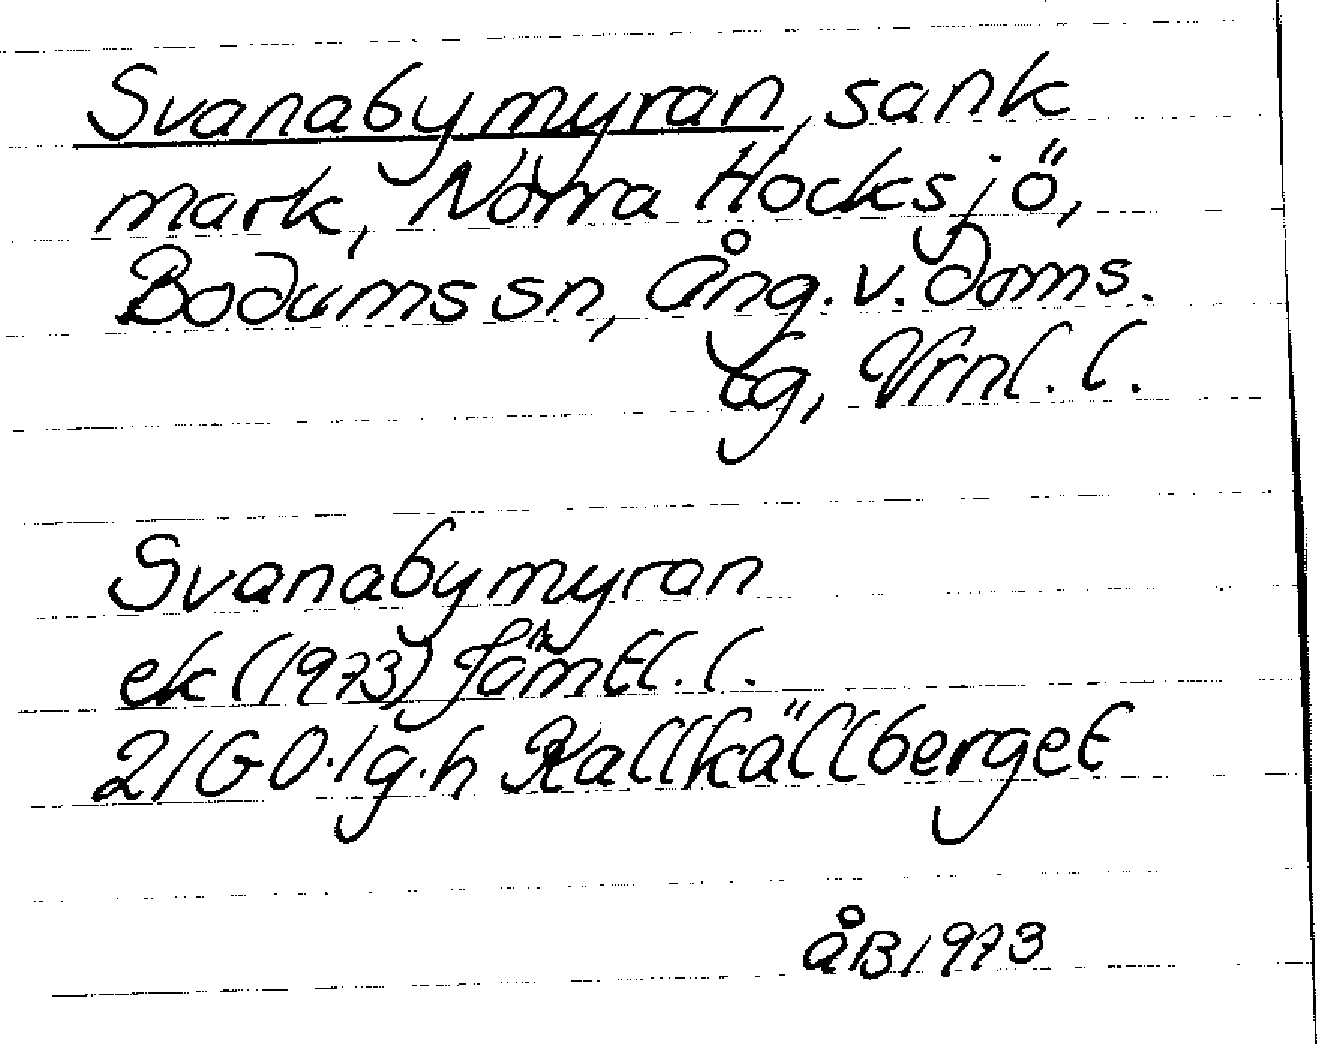 Svanabymyran, sank
mark, Norra Hocksjö,
Bodums sn, Ång. v. doms.
tg, Vrnl. l.
Svanabymyran
ek (1973) Jämtl. l.
21G0.1g.h Kallkällberget
åB1973